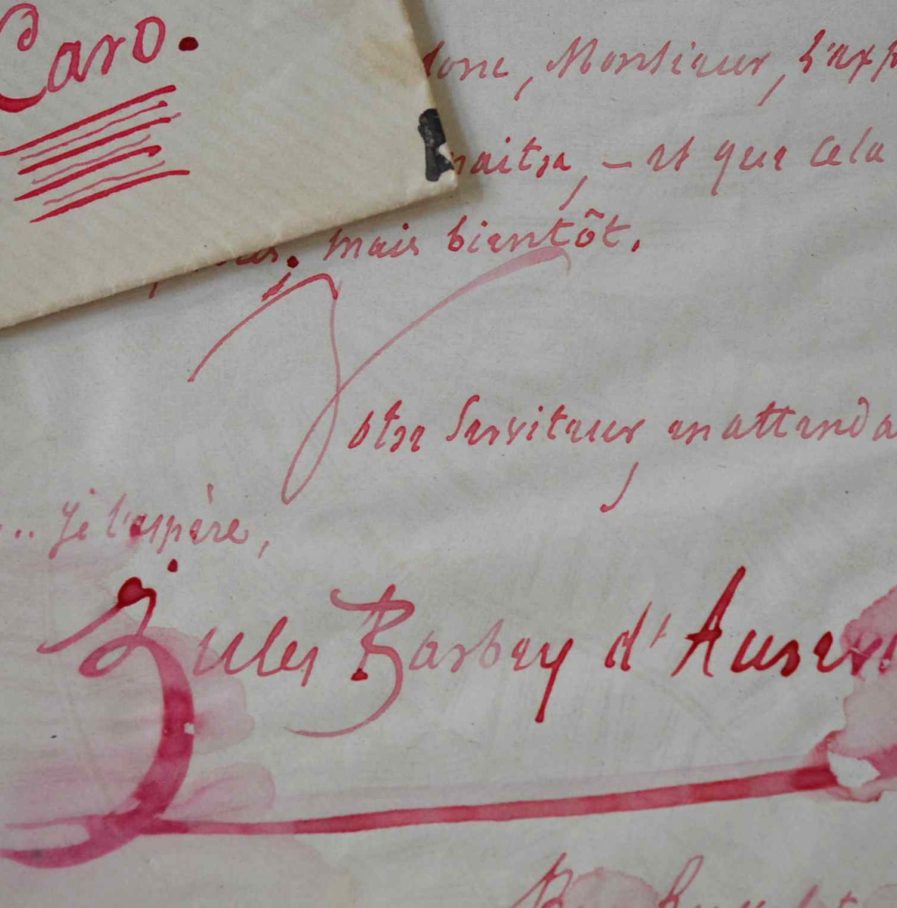 Caro.
donc, Monsieur, l'exp
naitre, – et que cela
mais bientôt.
Votre Serviteur en attenda
... je l'espère,
Jules Barbey d'Aurevi